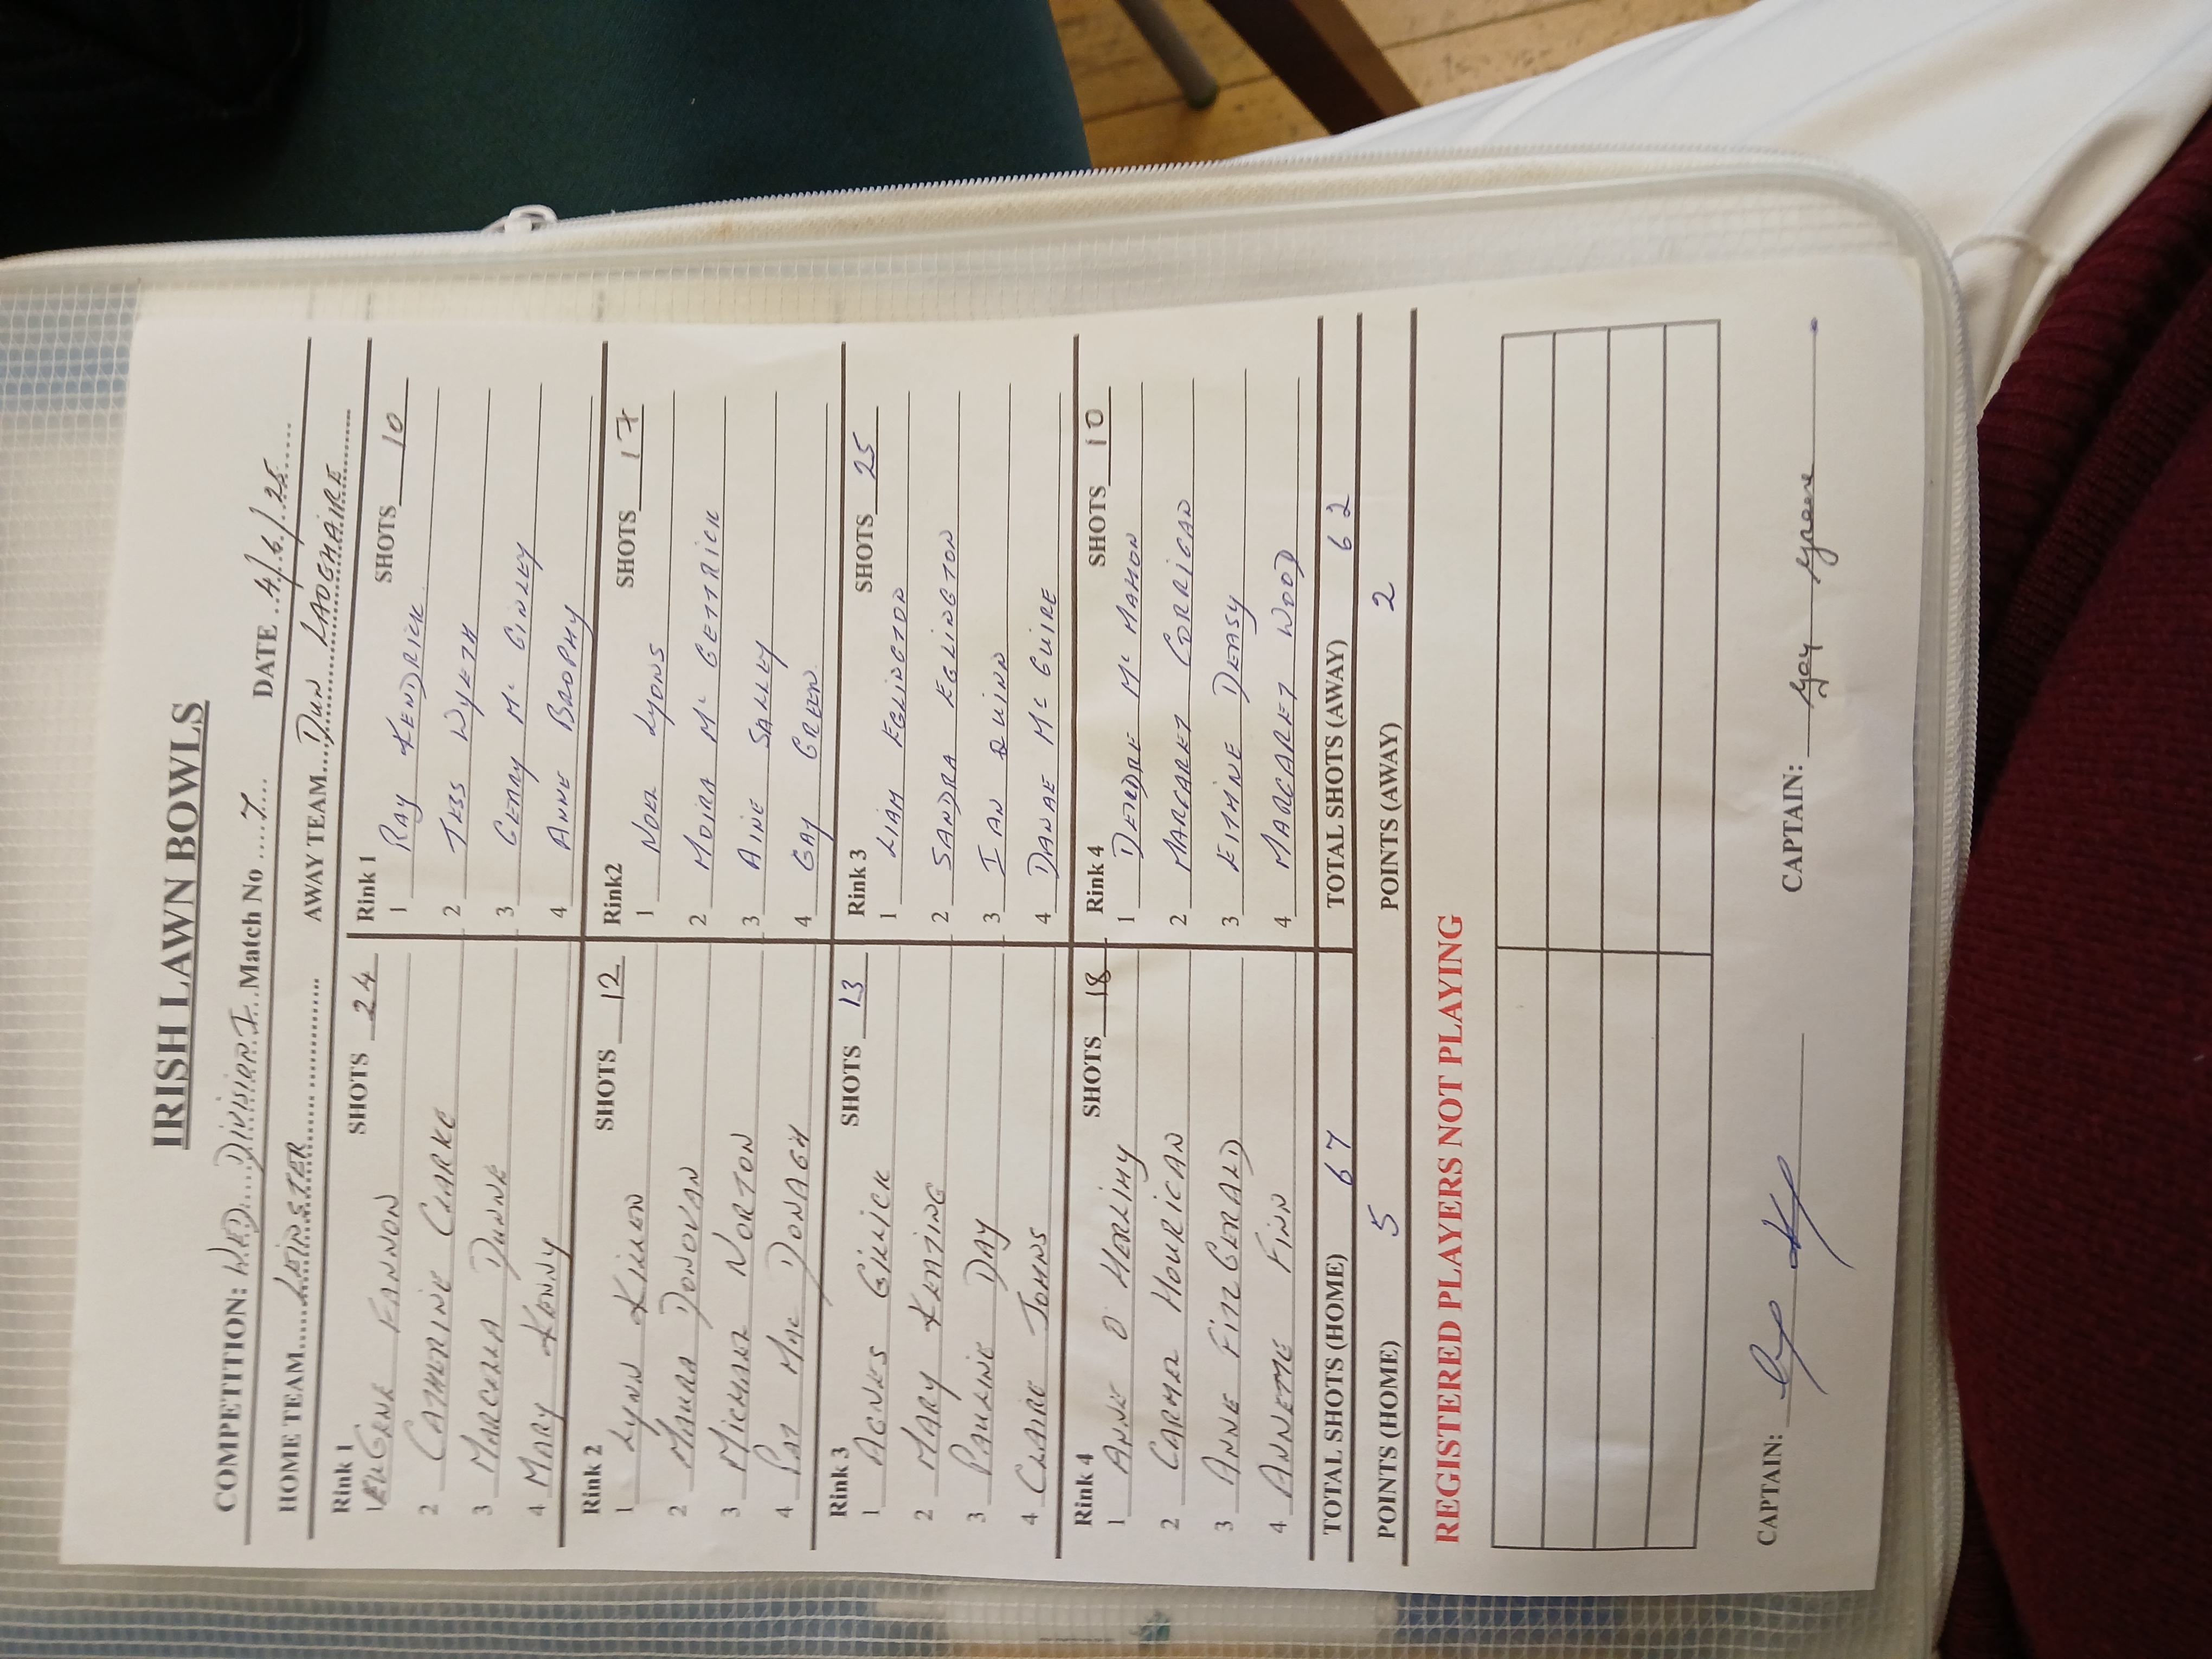 IRISH LAWN BOWLS
COMPETITION: WED. DIVISION I Match No 7 DATE 4/6/25
HOME TEAM LEINSTER AWAY TEAM DUN LAOGHAIRE
Rink 1 SHOTS 24 Rink 1 SHOTS 10
1 FANNON 1 RAY KENDRICK
2 CATHERINE CLARKE 2 TESS WYETH
3 MARCELLA DUNNE 3 GERRY Mc GINLEY
4 MARY KENNY 4 ANNE BROPHY
Rink 2 SHOTS 12 Rink2 SHOTS 17
1 LYNN KILLEN 1 NOEL LYONS
2 MAURA DONOVAN 2 MOIRA Mc GETTRICK
3 MICHAEL NORTON 3 AINE SALLEY
4 PAT Mac DONAGH 4 GAY GREEN
Rink 3 SHOTS 13 Rink 3 SHOTS 25
1 AGNES GILLICK 1 LIAM EGLINGTON
2 MARY KEATING 2 SANDRA EGLINGTON
3 PAULINE DAY 3 IAN QUINN
4 CLAIRE JOHNS 4 DANAE Mc GUIRE
Rink 4 SHOTS 18 Rink 4 SHOTS 10
1 ANNE O HERLIHY 1 DEIRDRE Mc MAHON
2 CARMEL HOURICAN 2 MARGARET CORRIGAN
3 ANNE FITZGERALD 3 EITHNE DEASY
4 ANNETTE FINN 4 MARGARET WOOD
TOTAL SHOTS (HOME) 67 TOTAL SHOTS (AWAY) 62
POINTS (HOME) 5 POINTS (AWAY) 2
REGISTERED PLAYERS NOT PLAYING
CAPTAIN: CAPTAIN: Gay Greene